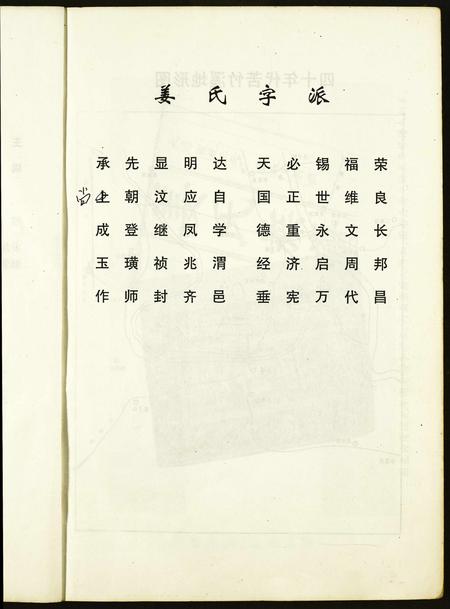 姜氏字派
承先显明达 天必锡福荣
尚上朝汶应自 国正世维良
成登继凤学 德重永文长
玉璜祯兆渭 经济启周邦
作师封齐邑 垂宪万代昌
四十年代苦竹溪地形图